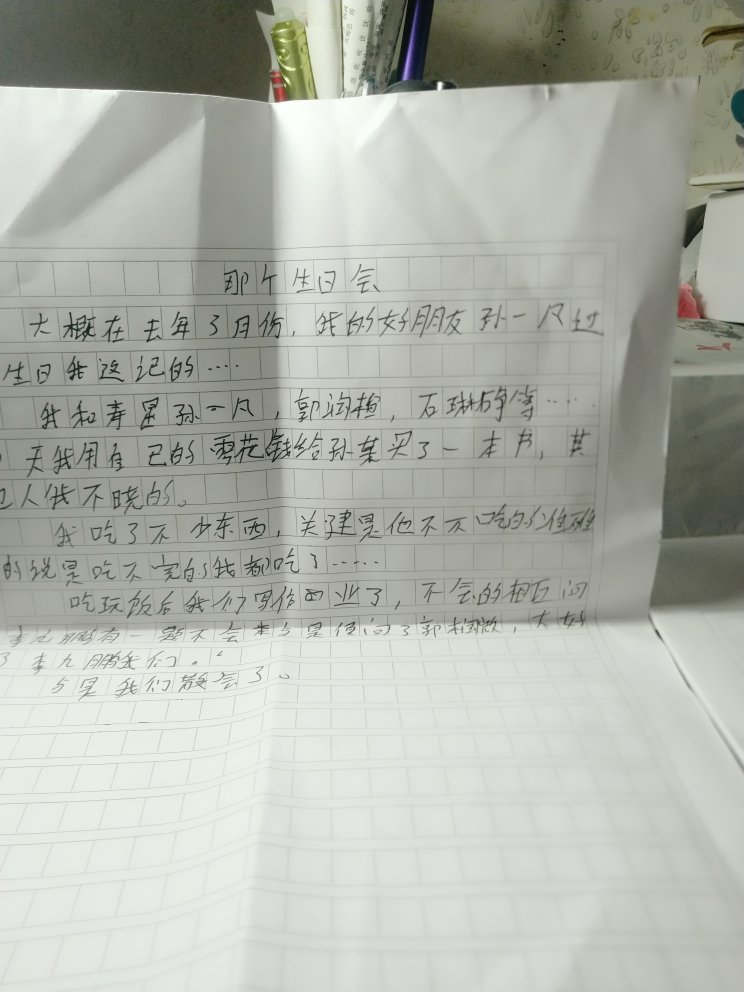 那个生日会
大概在去年3月份，我的好朋友孙一凡过
生日我这记的····
我和寿星孙一凡，郭润植，石琳婷等·····
天我用自己的零花钱给孙某买了一本书，其
人我不晓的。
我吃了不少东西，关建是他不不吃的
的说是吃不完的我都吃了·····
吃玩饭后我们写作业了，不会的相互问
李九鹏有一题不会 于是便问了郭
了李九鹏我们。
于是我们散会了。